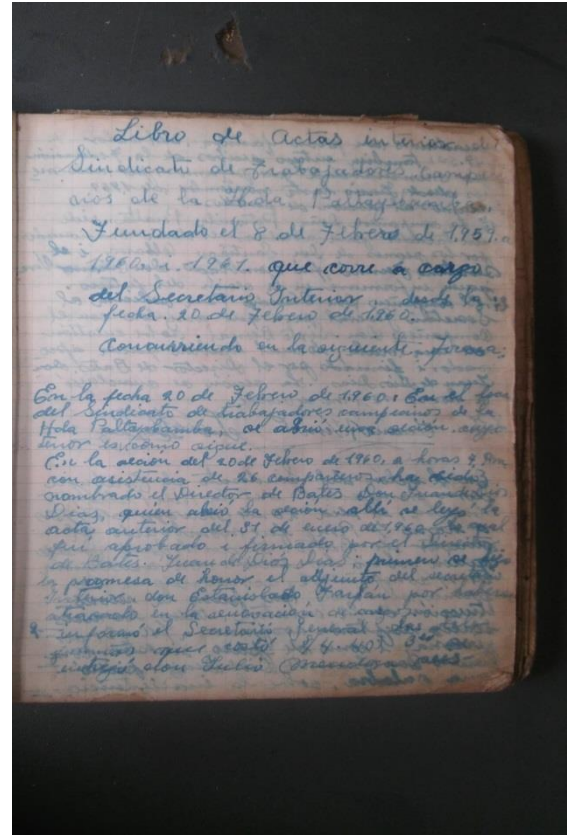 Libro de Actas interior del
Sindicato de Trabajadores campe
sinos de la Hda Paltaybamba.
Fundado el 8 de Febrero de 1.959.
1960. a. 1961. que corre a cargo
del Secretario Interior. desde la
fecha. 20 de Febrero de 1.960.
Concurriendo en la siguiente forma;
En la fecha 20 de Febrero de 1.960. En el
del Sindicato de trabajadores campesinos de la
Hda Paltaybamba, se abrió una seción
terior es como sigue.
En la seción del 20 de Febrero de 1960, a horas 9.
con asistencia de 26 compañeros ha sido
nombrado el Director de Bates Don Juan de Dios
Dias, quien abrió la seción allí se leyó la
acta anterior del 31 de enero de 1.960 la cual
fui aprobado i firmado por el Director
de Bates. Juan de Dios Dias; primero se hijo
la promesa de honor el adjunto del secretario
Interior don Estanislado Farfán por haber
en la renovación de
informó el Secretario General
que costó
don Julio Mendoza